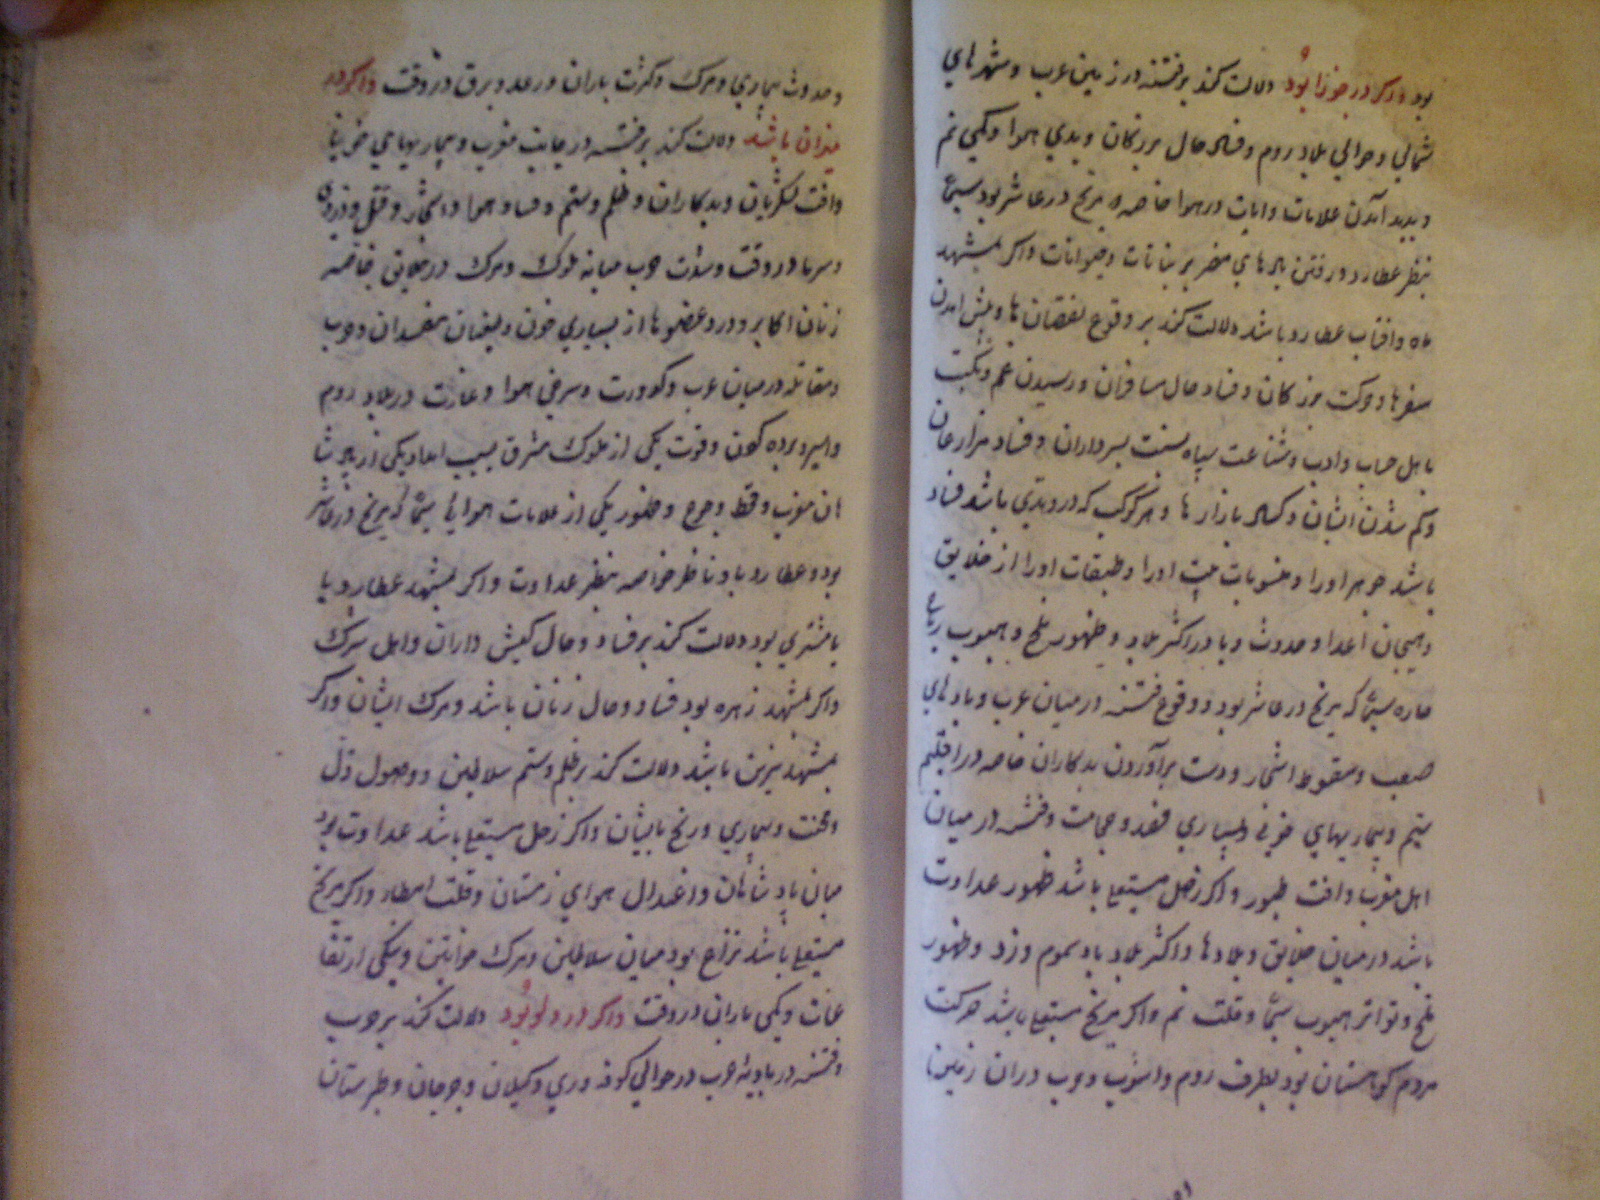 بود واکر در جوزا بود دلالت کند بر فتنه در زمین عرب و شهرهای
شمالی و حوالی بلاد روم و فساد حال بزرکان و بدی هوا و کمی نم
و پدید آمدن علامات و ایات در هوا خاصه که مریخ در عاشر بود سیما
بنظر عطارد و رفتن بادهای مضر بر نباتات و حیوانات واکر بمشهد
ماه و افتاب عطارد باشد دلالت کند بر وقوع نقصان ها و پیش امدن
سفرها و حرکت بزرکان و فساد حال مسافران و رسیدن غم و نکبت
باهل حساب و ادب و شناعت سپاه بنسبت سرداران و فساد مزارعان
و کم شدن ایشان و کساد بازارها و هر کوکب که در وتدی باشد فساد
باشد جوهر اورا و منسوبات اورا و طبقات اورا از خلایق
و هیجان اعدا و حدوث وبا در اکثر بلاد و ظهور ملخ و هبوب ریاح
حاره سیما که مریخ در عاشر بود و وقوع فتنه در میان عرب و بادهای
صعب و سقوط اشجار و دست برآوردن بدکاران خاصه در اقلیم
و بیماریهای خونی و بسیاری فصد و حجامت و فتنه در میان
اهل مغرب و افت طیور واکر زحل مستعلی باشد ظهور عداوت
باشد در میان خلایق و بلادها و اکثر بلاد باد سموم وزد و ظهور
ملخ و تواتر هبوب و قلت نم واکر مریخ مستعلی باشد حرکت
مردم کوهستان بود بطرف روم و اشوب و حرب دران زمین
و حدوث بیماری و مرک و کثرت باران و رعد و برق در وقت واکر در
میزان باشد دلالت کند بر فتنه در جانب مغرب و بیماریهای
و افت لشکریان و بدکاران و ظلم و ستم و فساد هوا و اشجار و قتل و دزدی
و سرما در وقت و شدت حرب میانه ملوک و مرک در خلایق خاصه
زنان اکابر و درد عضوها از بسیاری خون و مفسدان و حرب
و مقاتله در میان عرب و کدورت و سرخی هوا و غارت در بلاد روم
و اسیر و برده کردن و فوت یکی از ملوک مشرق بسبب یکی از
ان مغرب و قحط و جوع و ظهور یکی از علامات هوایی سیما که مریخ در عاشر
بود و عطارد باو ناظر خاصه بنظر عداوت واکر بمشهد عطارد یا
یا مشتری بود دلالت کند بر فساد و حال کیش داران و اهل شرک
واکر بمشهد زهره بود فساد و حال زنان باشد و مرک ایشان واکر
بمشهد نیرین باشد دلالت کند بر ظلم و ستم سلاطین و وصول ذل
و محنت و بیماری و رنج بایشان واکر زحل مستعلی باشد عداوت بود
میان پادشاهان و اعتدال هوای زمستان و قلت امطار واکر مریخ
مستعلی باشد نزاع بود میان سلاطین و مرک خواتین و نیکی ارتفا
عات و کمی باران در وقت واکر در دلو بود دلالت کند بر حرب
و فتنه در بادیه عرب در حوالی کوفه و ری و کیلان و جرجان و طبرستان